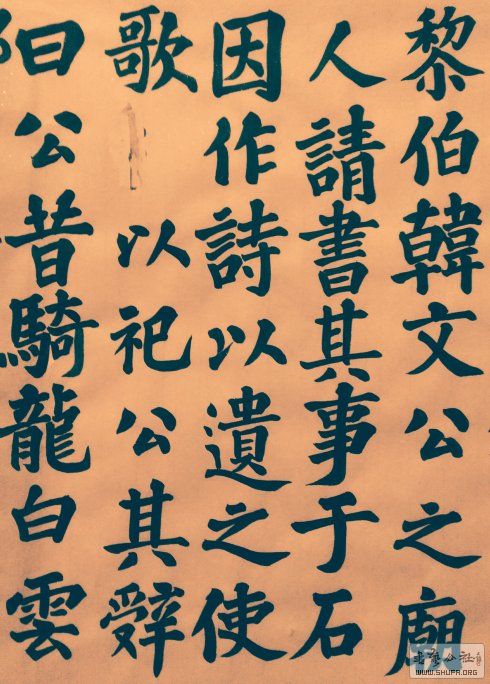 黎伯韓文公之廟
人請書其事于石
因作詩以遺之使
歌以祀公其辭
曰公昔騎龍白雲
WWW.SHUFA.ORG